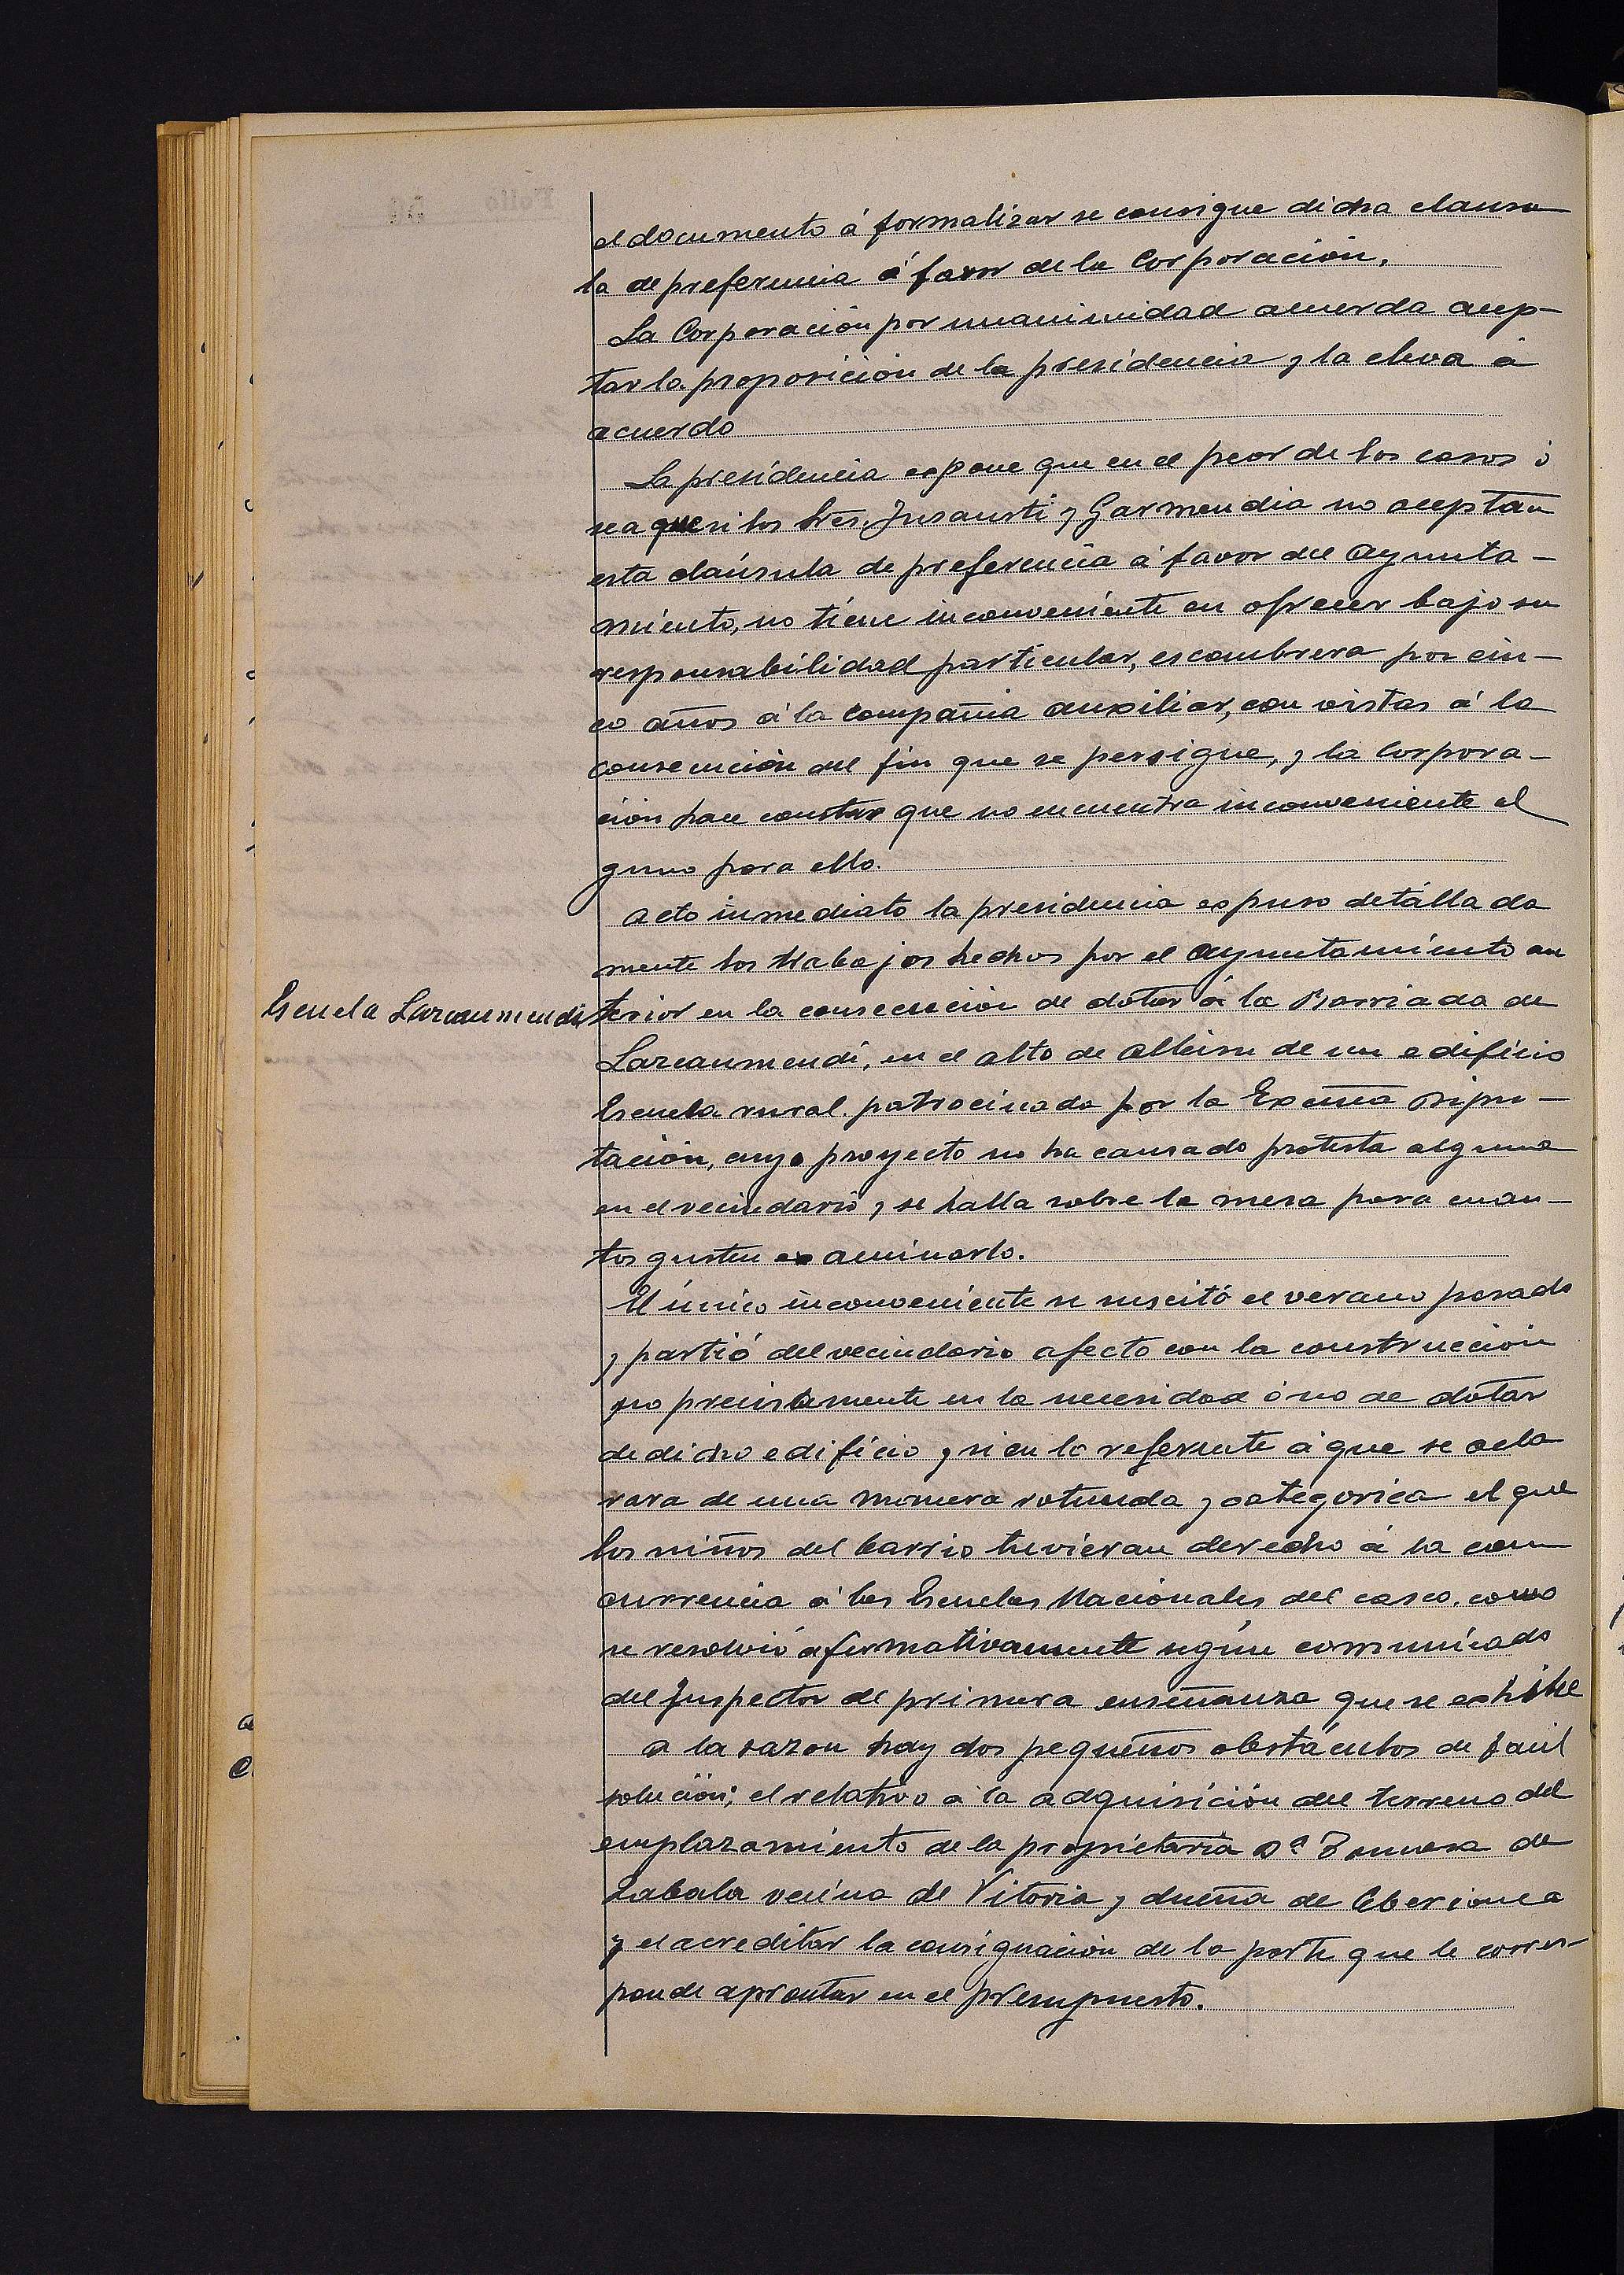 el documento á formalizar se consigue dicha clausu
la de preferencia á favor de la Corporación.
La Corporación por unanimidad acuerda acep-
tar la proposición de la presidencia y la eleva á
acuerdo
La presidencia expone que en el peor de los casos ó
sea que si los Sres. Insausti y Garmendia no aceptan
esta claúsula de preferencia á favor del Ayunta-
miento, no tiene inconveniente en ofrecer bajo su
responsabilidad particular, escombrera por cin-
co años á la Compañia Auxiliar, con vistas á la
consecución del fin que se persigue, y la Corpora-
ción hace constar que no encuentra inconveniente al
guno para ello.
Acto inmediato la presidencia expuso detallada
mente los trabajos hechos por el Ayuntamiento an
Escuela Lazcaumendi
terior en la consecución de dotar á la Barriada de
Lazcaumendi, en el alto de Altzisu de un edificio
Escuela rural. patrocinada por la Excma Dipu-
tación, cuyo proyecto no ha causado protesta alguna
en el vecindario y se halla sobre la mesa para cuan-
tos gusten examinarlo.
El único inconveniente se suscitó el verano pasado
y partió del vecindario afecto con la construcción
no precisamente en la necesidad ó no de dotar
de dicho edificio y si en lo referente á que se acla
rara de una manera rotunda y categorica el que
los niños del barrio tuvieran derecho á la con
currencia á las Escuelas Nacionales del casco, como
se resolvió afirmativamente según comunicado
del Inspector de primera enseñanza que se exhibe
a la sazon hay dos pequeños obstáculos de facil
solución; el relativo a la adquisición del terreno del
emplazamiento de la propietaria Dª de
Zabala vecina de Vitoria y dueña de
y el acreditar la consignación de la parte que le corres-
ponde aprontar en el presupuesto.